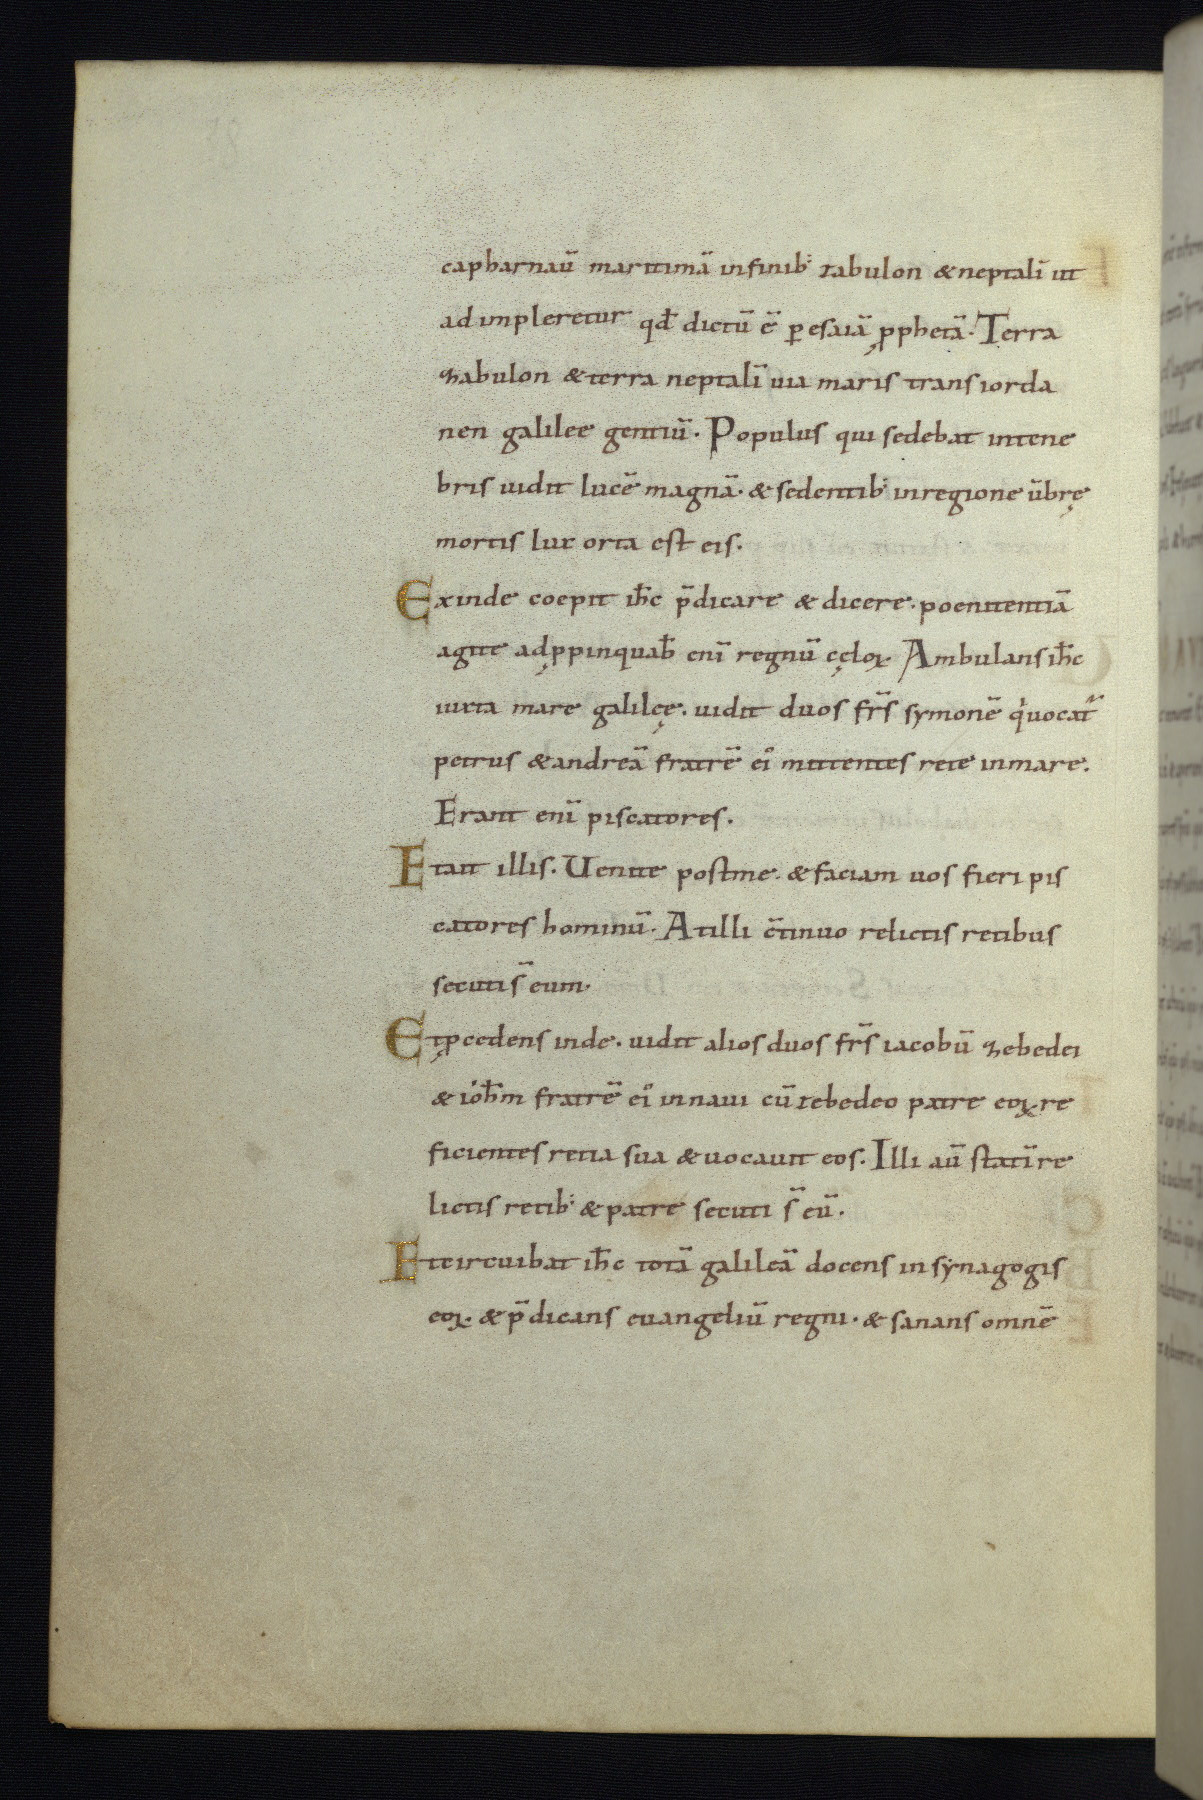 capharnaū maritimā infinib; zabulon & neptalī ut
adimpleretur qđ dictū ē ꝑ esaiā ꝓphetā. Terra
zabulon & terra neptalī uia maris trans iorda
nen galilee gentiū. Populus qui sedebat intene
bris uidit lucē magnā. & sedentib; inregione ūbrę
mortis lux orta est eis.
Exinde coepit ih̄c p̄dicare & dicere. poenitentiā
agite adꝓpinquab̄ enī regnū cęloꝝ. Ambulans ih̄c
iuxta mare galileę. uidit duos fr̄s symonē q̇ uocat̃
petrus & andreā fratrē ei᷒ mittentes rete inmare.
Erant enī piscatores.
Et ait illis. Uenite postme. & faciam uos fieri pis
catores hominū. At illi c̄tinuo relictis retibus
secuti s̄ eum.
Et ꝓcedens inde. uidit alios duos fr̄s iacobū zebedei
& ioh̄m fratrē ei᷒ innaui cū zebedeo patre eoꝝ re
ficientes retia sua & uocauit eos. Illi aū statī re
lictis retib; & patre secuti s̄ eū.
Et circuibat ih̄c totā galileā docens in synagogis
eoꝝ. & p̄dicans euangeliū regni. & sanans omnē